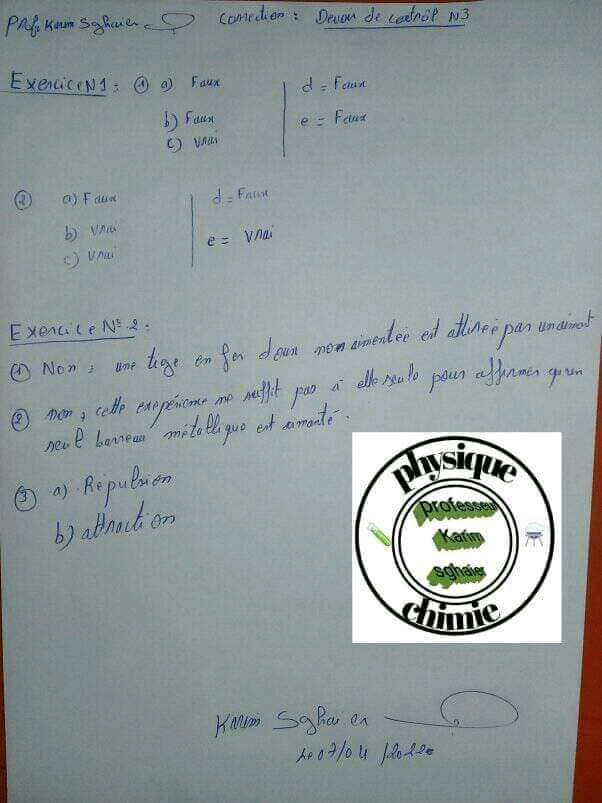 Prof: Karim Sghaier Correction: Devoir de contrôl N3
Exercice N1: ① a) Faux d = Faux
b) Faux e = Faux
c) Vrai
② a) Faux d = Faux
b) Vrai e = Vrai
c) Vrai
Exercice N° 2:
① Non, une tige en fer doux non aimentée est attirée par un aimant
② non, cette exepérience ne suffit pas à elle seule pour affirmer qu'un
seul barreau métallique est aimanté.
③ a) Répulsion
b) attraction
physique
professeur
Karim
sghaier
chimie
Karim Sghaier
le 07/04